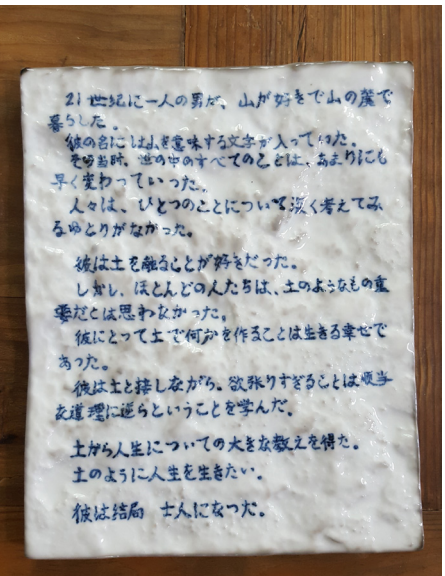 21世紀に一人の男が、山が好きで山の麓で
暮らした。
彼の名には山を意味する文字が入っていた。
その当時、世の中のすべてのことは、あまりにも
早く変わっていった。
人々は、ひとつのことについて深く考えてみ
るゆとりがなかった。
彼は土を触ることが好きだった。
しかし、ほとんどの人たちは、土のようなもの重
要だとは思わなかった。
彼にとって土で何かを作ることは生きる幸せで
あった。
彼は土と接しながら、欲張りすぎることは順当
な道理に逆らということを学んだ。
土から人生についての大きな教えを得た。
土のように人生を生きたい。
彼は結局 土人になった。